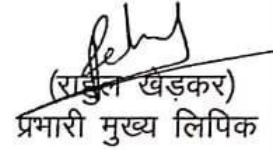 (राहुल खेड़कर)
प्रभारी मुख्य लिपिक